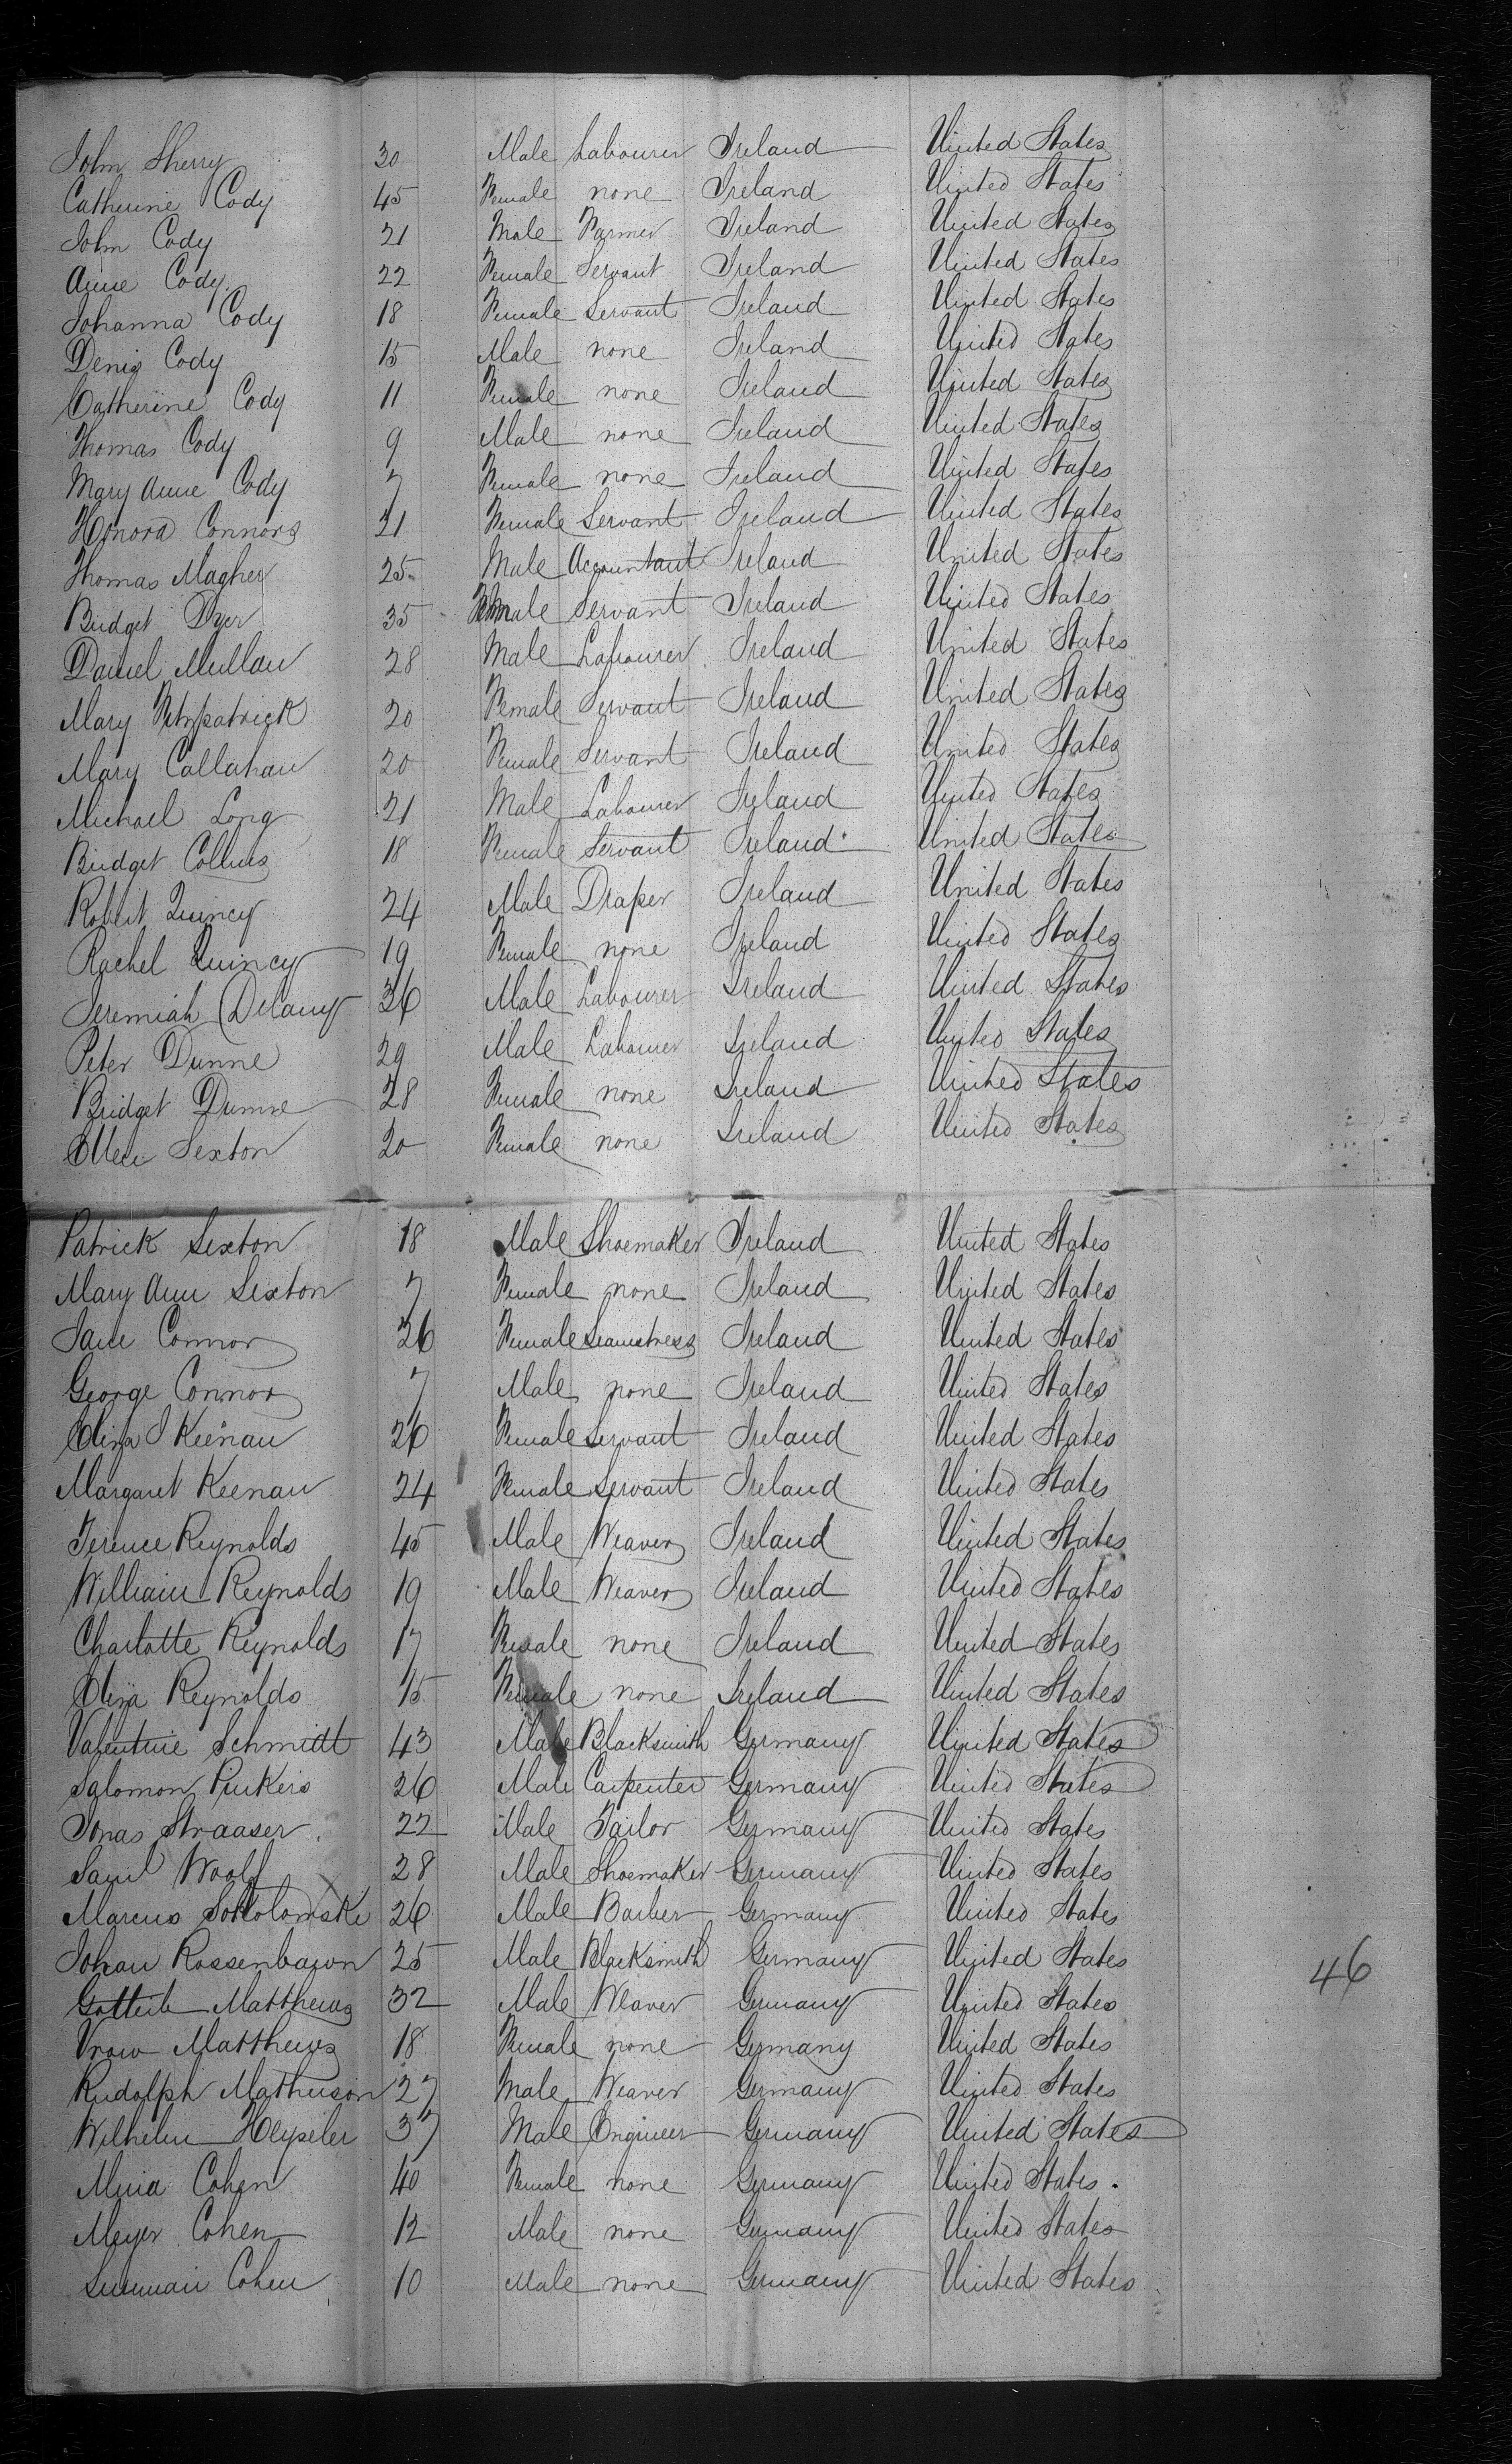 John Sherry 30 Male Labourer Ireland United States
Catherine Cody 45 Female none Ireland United States
John Cody 21 Male Farmer Ireland United States
Anne Cody 22 Female Servant Ireland United States
Johanna Cody 18 Female Servant Ireland United States
Denis Cody 15 Male none Ireland United States
Catherine Cody 11 Female none Ireland United States
Thomas Cody 9 Male none Ireland United States
Mary Anne Cody 7 Female none Ireland United States
Honora Connors 21 Female Servant Ireland United States
Thomas Magher 25 Male Accountant Ireland United States
Bridget Dyer 35 Female Servant Ireland United States
Daniel Mullan 28 Male Labourer Ireland United States
Mary Fitzpatrick 20 Female Servant Ireland United States
Mary Callahan 20 Female Servant Ireland United States
Michael Long 21 Male Labourer Ireland United States
Bridget Collins 18 Female Servant Ireland United States
Robert Quincy 24 Male Draper Ireland United States
Rachel Quincy 19 Female none Ireland United States
Jeremiah Delany 36 Male Labourer Ireland United States
Peter Dunne 29 Male Labourer Ireland United States
Bridget Dunne 28 Female none Ireland United States
Ellen Sexton 20 Female none Ireland United States
Patrick Sexton 18 Male Shoemaker Ireland United States
Mary Ann Sexton 7 Female none Ireland United States
Jane Connor 26 Female Seamstress Ireland United States
George Connor 7 Male none Ireland United States
Eliza J Keenan 26 Female Servant Ireland United States
Margaret Keenan 24 Female Servant Ireland United States
Terence Reynolds 45 Male Weaver Ireland United States
William Reynolds 19 Male Weaver Ireland United States
Charlotte Reynolds 17 Female none Ireland United States
Eliza Reynolds 15 Female none Ireland United States
Valentine Schmidt 43 Male Blacksmith Germany United States
Salomon 26 Male Carpenter Germany United States
Jonas Straaser 22 Male Tailor Germany United States
Saml Woolf 28 Male Shoemaker Germany United States
Marcus 26 Male Barber Germany United States
Johan Rossenbawn 25 Male Blacksmith Germany United States
Gottlieb Matthews 32 Male Weaver Germany United States 46
Vrow Matthews 18 Female none Germany United States
Rudolph Matheison 27 Male Weaver Germany United States
Wilhelm Heyseler 37 Male Engineer Germany United States
Mina Cohen 40 Female none Germany United States
Meyer Cohen 12 Male none Germany United States
Cohen 10 Male none Germany United States